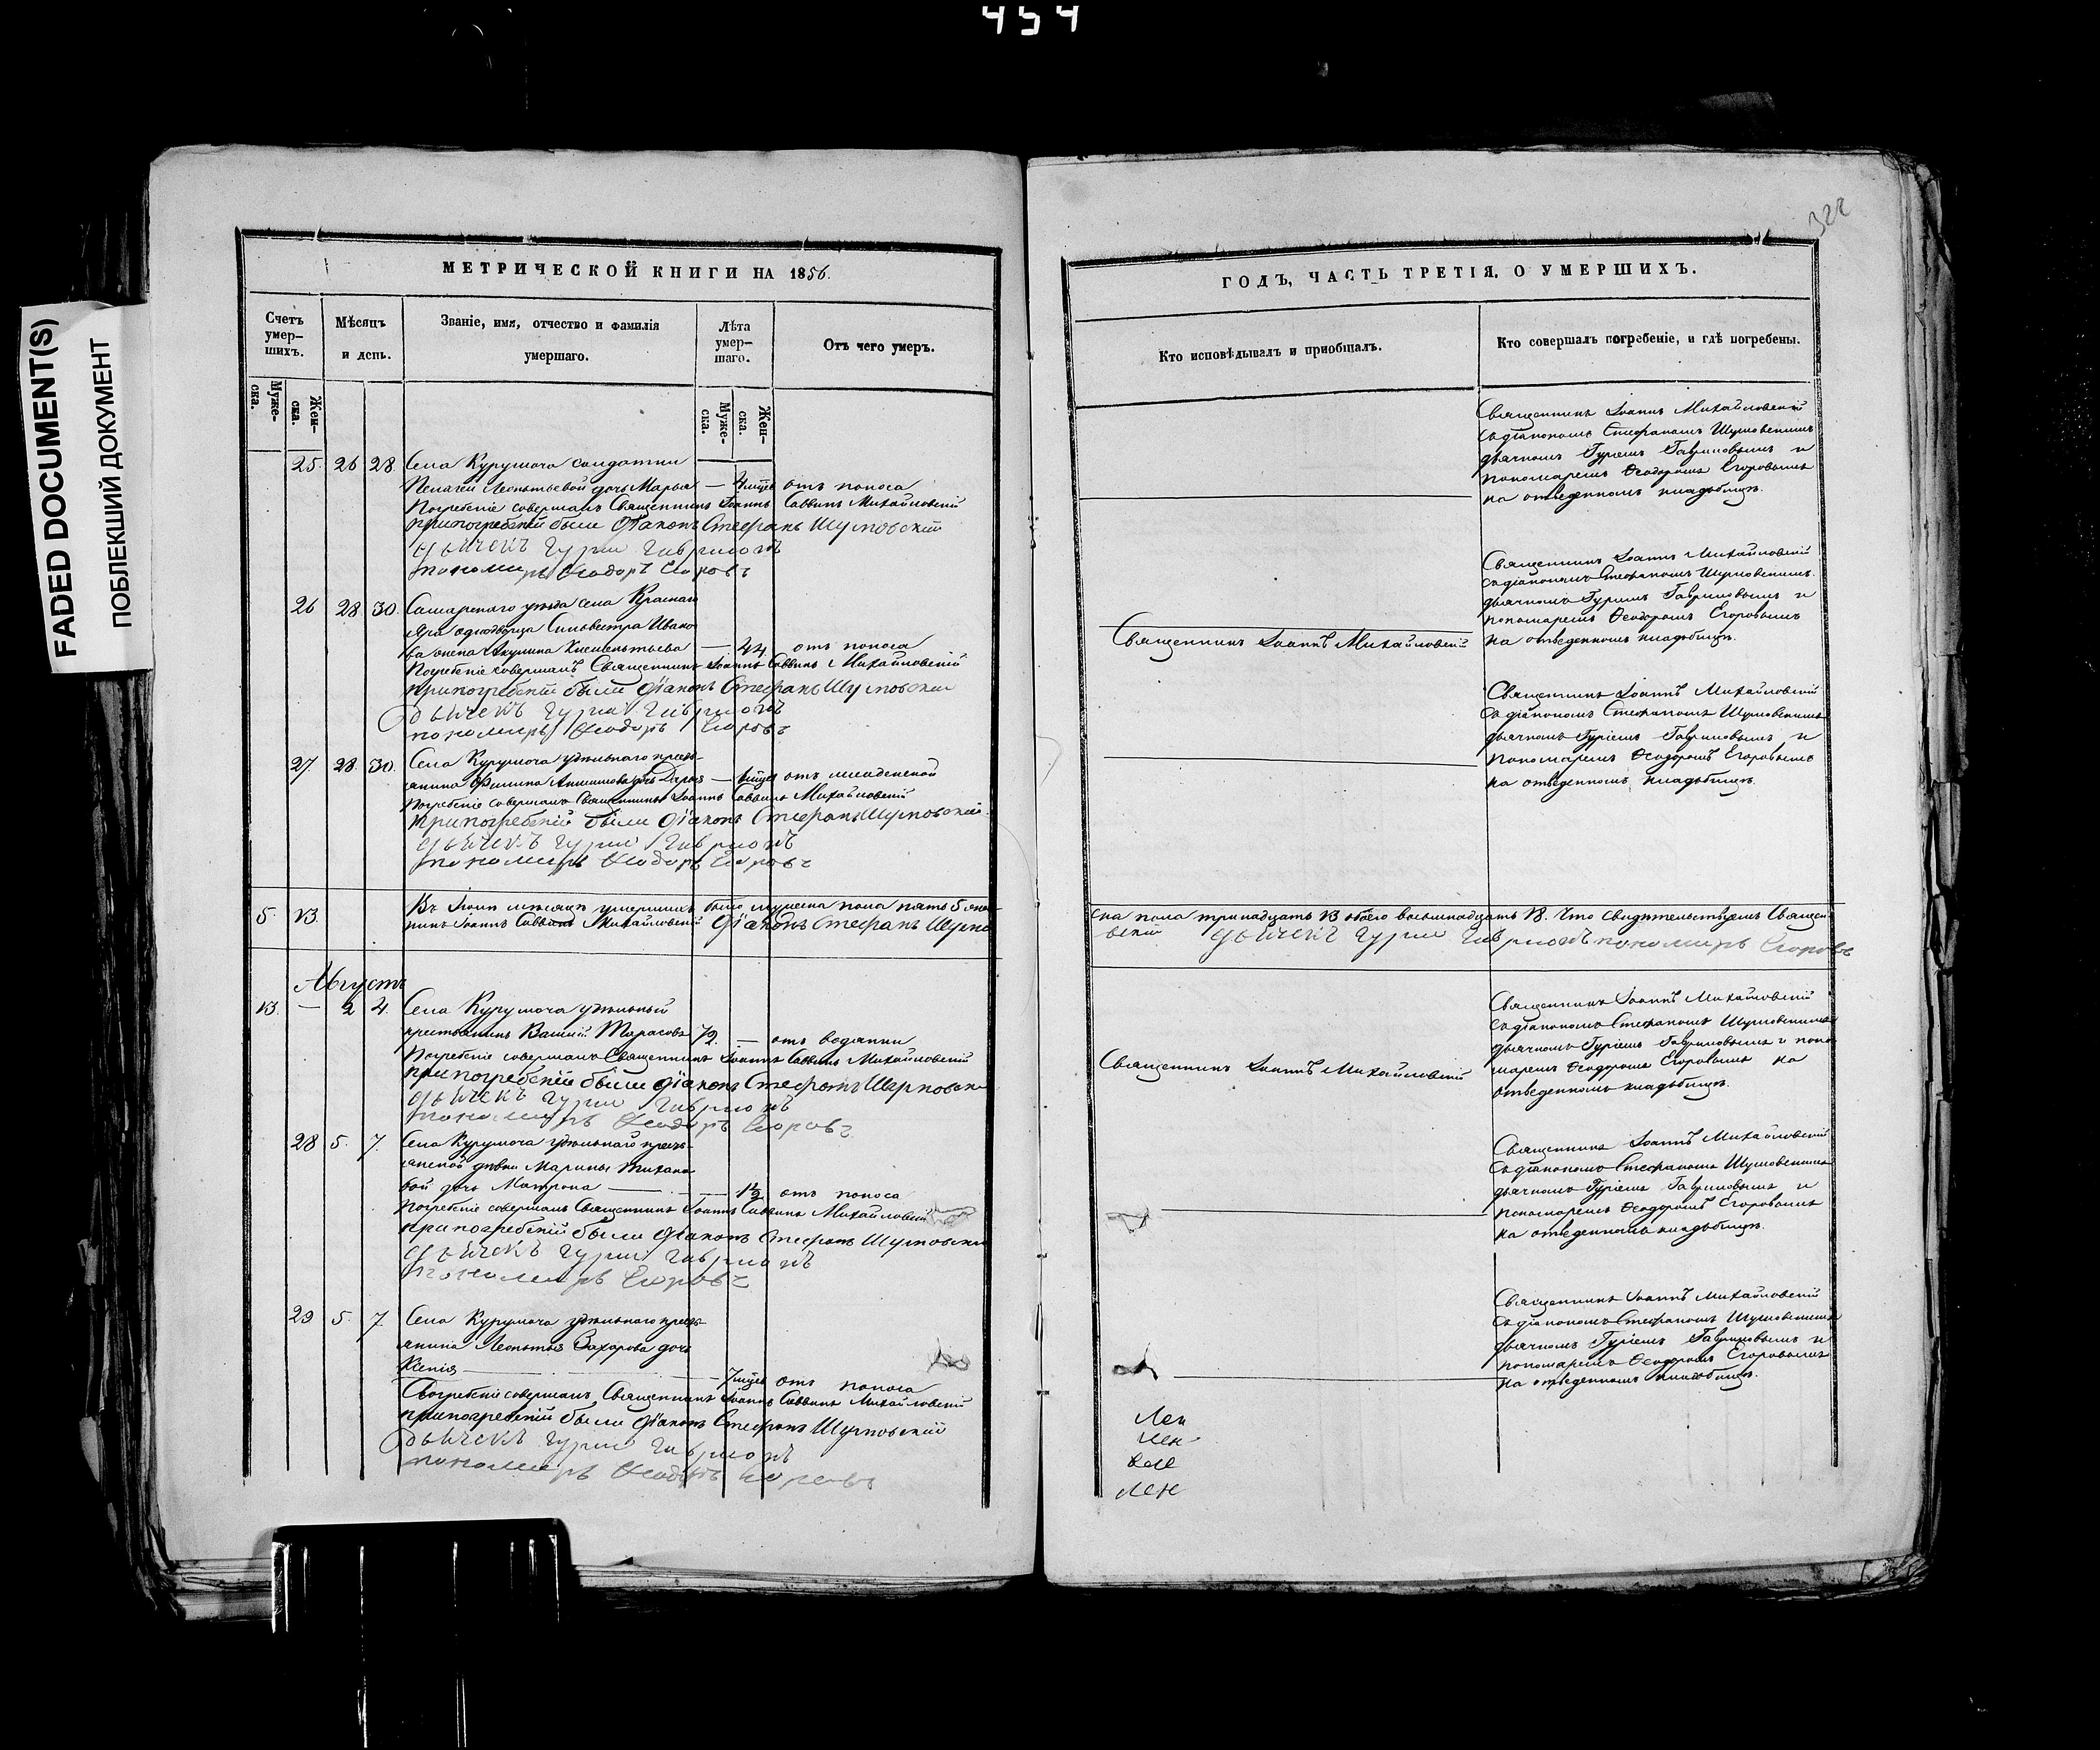 454
FADED DOCUMENT(S)
ПОБЛЕКШИЙ ДОКУМЕНТ
МЕТРИЧЕСКОЙ КНИГИ НА 1856.
Счетъ умер-шихъ.
Мѣсяцъ и день.
Званіе, имя, отчество и фамилія умершаго.
Лѣта умер-шаго.
Отъ чего умеръ.
Муже-ска.
Жен-ска.
Муже-ска.
Жен-ска.
25. 26 28. Села Курумоча солдатки
Пелагеи Леонтьевой дочь Марья — 4 мцев отъ поноса
Погребеніе совершалъ Священникъ Іоаннъ Саввинъ Михайловскій
При погребеніи были Діаконъ Стефанъ Шумовскій
дьячекъ Гурій Гавриловъ
пономарь Ѳеодоръ Егоровъ
26 28 30. Самарскаго уѣзда села Краснаго
Яра однодворца Сильвестра Ивано
ва жена Акулина Климентьева — 44. отъ поноса
Погребеніе совершалъ Священникъ Іоаннъ Саввинъ Михайловскій
При погребеніи были Діаконъ Стефанъ Шумовскій
Дьячекъ Гурій Гавриловъ
пономарь Ѳеодоръ Егоровъ
27. 28. 30. Села Курумоча удѣльнаго кресть-
янина Филипа дочь Дарья — мцев отъ младенской
Погребеніе совершалъ Священникъ Іоаннъ Саввинъ Михайловскій
При погребеніи были Діаконъ Стефанъ Шумовскій.
дьячекъ Гурій Гавриловъ
пономарь Ѳеодоръ Егоровъ
5. 13. Въ Іюлѣ мѣсяцѣ умершихъ было мужеска пола пять 5 жен
никъ Іоаннъ Саввинъ Михайловскій Діаконъ Стефанъ Шумо
Августъ
13. — 2 4. Села Курумоча удѣльный
крестьянинъ Василій Тарасовъ 72. — отъ водянки
Погребеніе совершалъ Священникъ Іоаннъ Саввинъ Михайловскій
При погребеніи были Діаконъ Стефанъ Шумовскій
дьячекъ Гурій Гавриловъ
пономарь Ѳеодоръ Егоровъ
28 5. 7. Села Курумоча удѣльнаго кресть-
янской дѣвки Марины Тихано
вой дочь Матрона — — 1½ отъ поноса
Погребеніе совершалъ Священникъ Іоаннъ Саввинъ Михайловскій
При погребеніи были Діаконъ Стефанъ Шумовскій
дьячекъ Гурій Гавриловъ
пономарь Егоровъ
29 5. 7. Села Курумоча удѣльнаго кресть
янина Леонтья Захарова дочь
Ксенія — 7 мцев отъ поноса
Погребеніе совершалъ Священникъ Іоаннъ Саввинъ Михайловскій
При погребеніи были Діаконъ Стефанъ Шумовскій
Дьячекъ Гурій Гавриловъ
пономарь Ѳеодоръ Егоровъ
322
ГОДЪ, ЧАСТЬ ТРЕТІЯ, О УМЕРШИХЪ.
Кто исповѣдывалъ и пріобщалъ.
Кто совершалъ погребеніе, и гдѣ погребены.
Священникъ Іоаннъ Михайловскій
съ діакономъ Стефаномъ Шумовскимъ
дьячкомъ Гуріемъ Гавриловымъ и
пономаремъ Ѳеодоромъ Егоровымъ
на отведенномъ кладбищѣ.
Священникъ Іоаннъ Михайловскій
Священникъ Іоаннъ Михайловскій
съ діакономъ Стефаномъ Шумовскимъ.
дьячкомъ Гуріемъ Гавриловымъ и
пономаремъ Ѳеодоромъ Егоровымъ
на отведенномъ кладбищѣ.
Священникъ Іоаннъ Михайловскій
съ діакономъ Стефаномъ Шумовскимъ
дьячкомъ Гуріемъ Гавриловымъ и
пономаремъ Ѳеодоромъ Егоровымъ
на отведенномъ кладбищѣ.
ска пола тринадцать 13 обоего восьмнадцать 18. Что свидѣтельствуемъ Священ
вскій дьячекъ Гурій Гавриловъ пономарь Егоровъ
Священникъ Іоаннъ Михайловскій
Священникъ Іоаннъ Михайловскій
съ діакономъ Стефаномъ Шумовскимъ
дьячкомъ Гуріемъ Гавриловымъ и поно
маремъ Ѳеодоромъ Егоровымъ на
отведенномъ кладбищѣ.
Священникъ Іоаннъ Михайловскій
съ діакономъ Стефаномъ Шумовскимъ
дьячкомъ Гуріемъ Гавриловымъ и
пономаремъ Ѳеодоромъ Егоровымъ
на отведенномъ кладбищѣ.
Священникъ Іоаннъ Михайловскій
съ діакономъ Стефаномъ Шумовскимъ
дьячкомъ Гуріемъ Гавриловымъ и
пономаремъ Ѳеодоромъ Егоровымъ
на отведенномъ кладбищѣ.